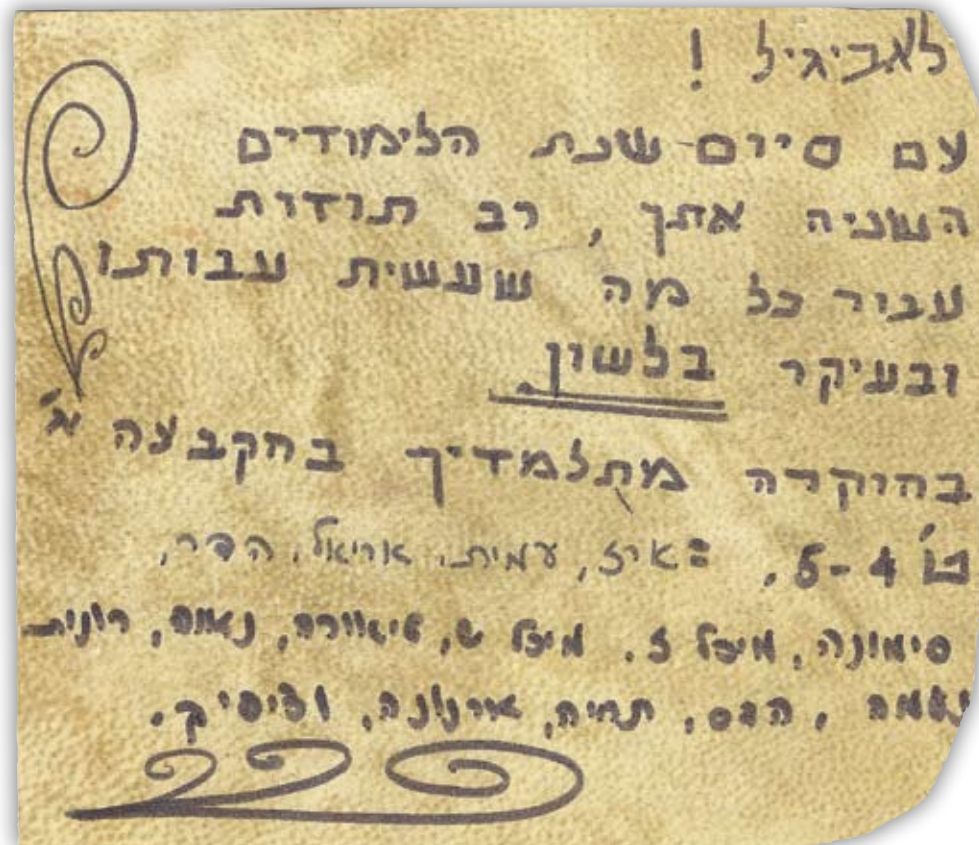 לאביגיל !
עם סיום שנת הלימודים
השניה אתך , רב תודות
עבור כל מה שעשית עבותנו
ובעיקר בלשון
בהוקרה מתלמדיך בהקבצה א'
ט' 4-5. ארז, עמית, אוריאל, הדר,
סימונה, מיכל ז. מיכל ש, נאוה, רונית
נעמה , הדס, תחיה, ארנונה,